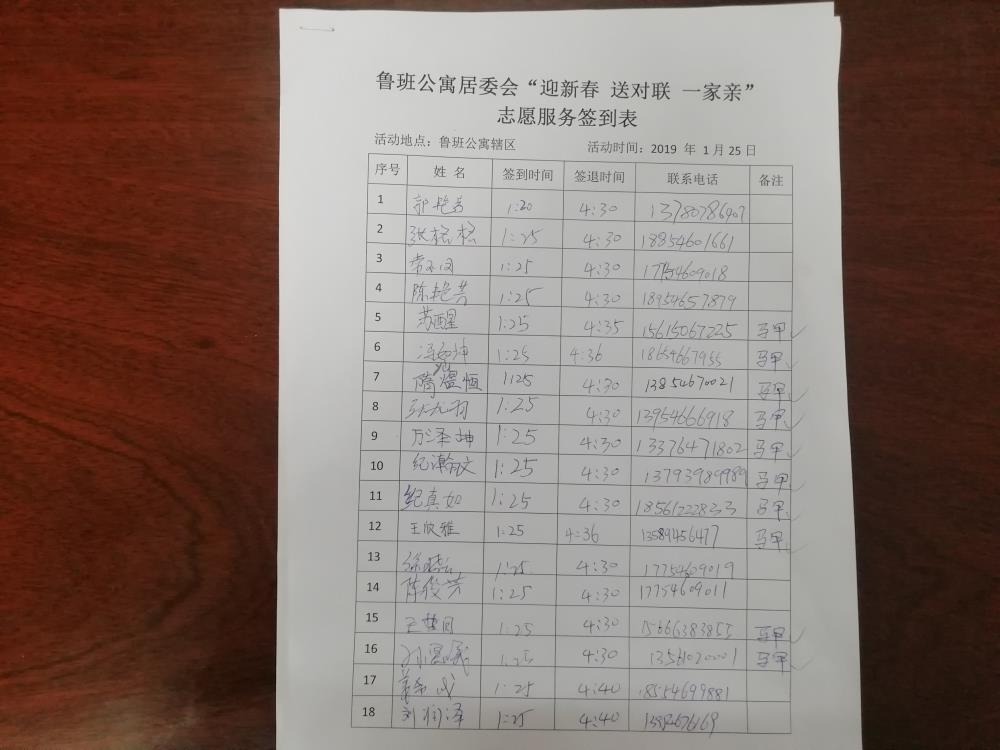 鲁班公寓居委会“迎新春 送对联 一家亲”
志愿服务签到表
活动地点：鲁班公寓辖区 活动时间：2019 年 1月25日
序号 姓 名 签到时间 签退时间 联系电话 备注
1 郭艳芳 1:20 4:30 13780786907
2 张格格 1:25 4:30 18854601661
3 1:25 4:30 17754609018
4 陈艳芳 1:25 4:30 18954657879
5 苏醒 1:25 4:35 15615067225 马甲
6 1:25 4:36 18654667955 马甲
7 隋煜恒 1:25 4:30 13854670021 马甲
8 1:25 4:30 13954666918 马甲
9 万泽坤 1:25 4:30 13376471802 马甲
10 纪瀚文 1:25 4:30 13793989989 马甲
11 纪真如 1:25 4:30 18561222833 马甲
12 王欣雅 1:25 4:36 13589456477 马甲
13 1:25 4:30 17754609019
14 陈俊芳 1:25 4:30 17754609011
15 1:25 4:30 15666383855 马甲
16 1:25 4:30 13561020001 马甲
17 1:25 4:40 18554699881
18 刘润泽 1:25 4:40